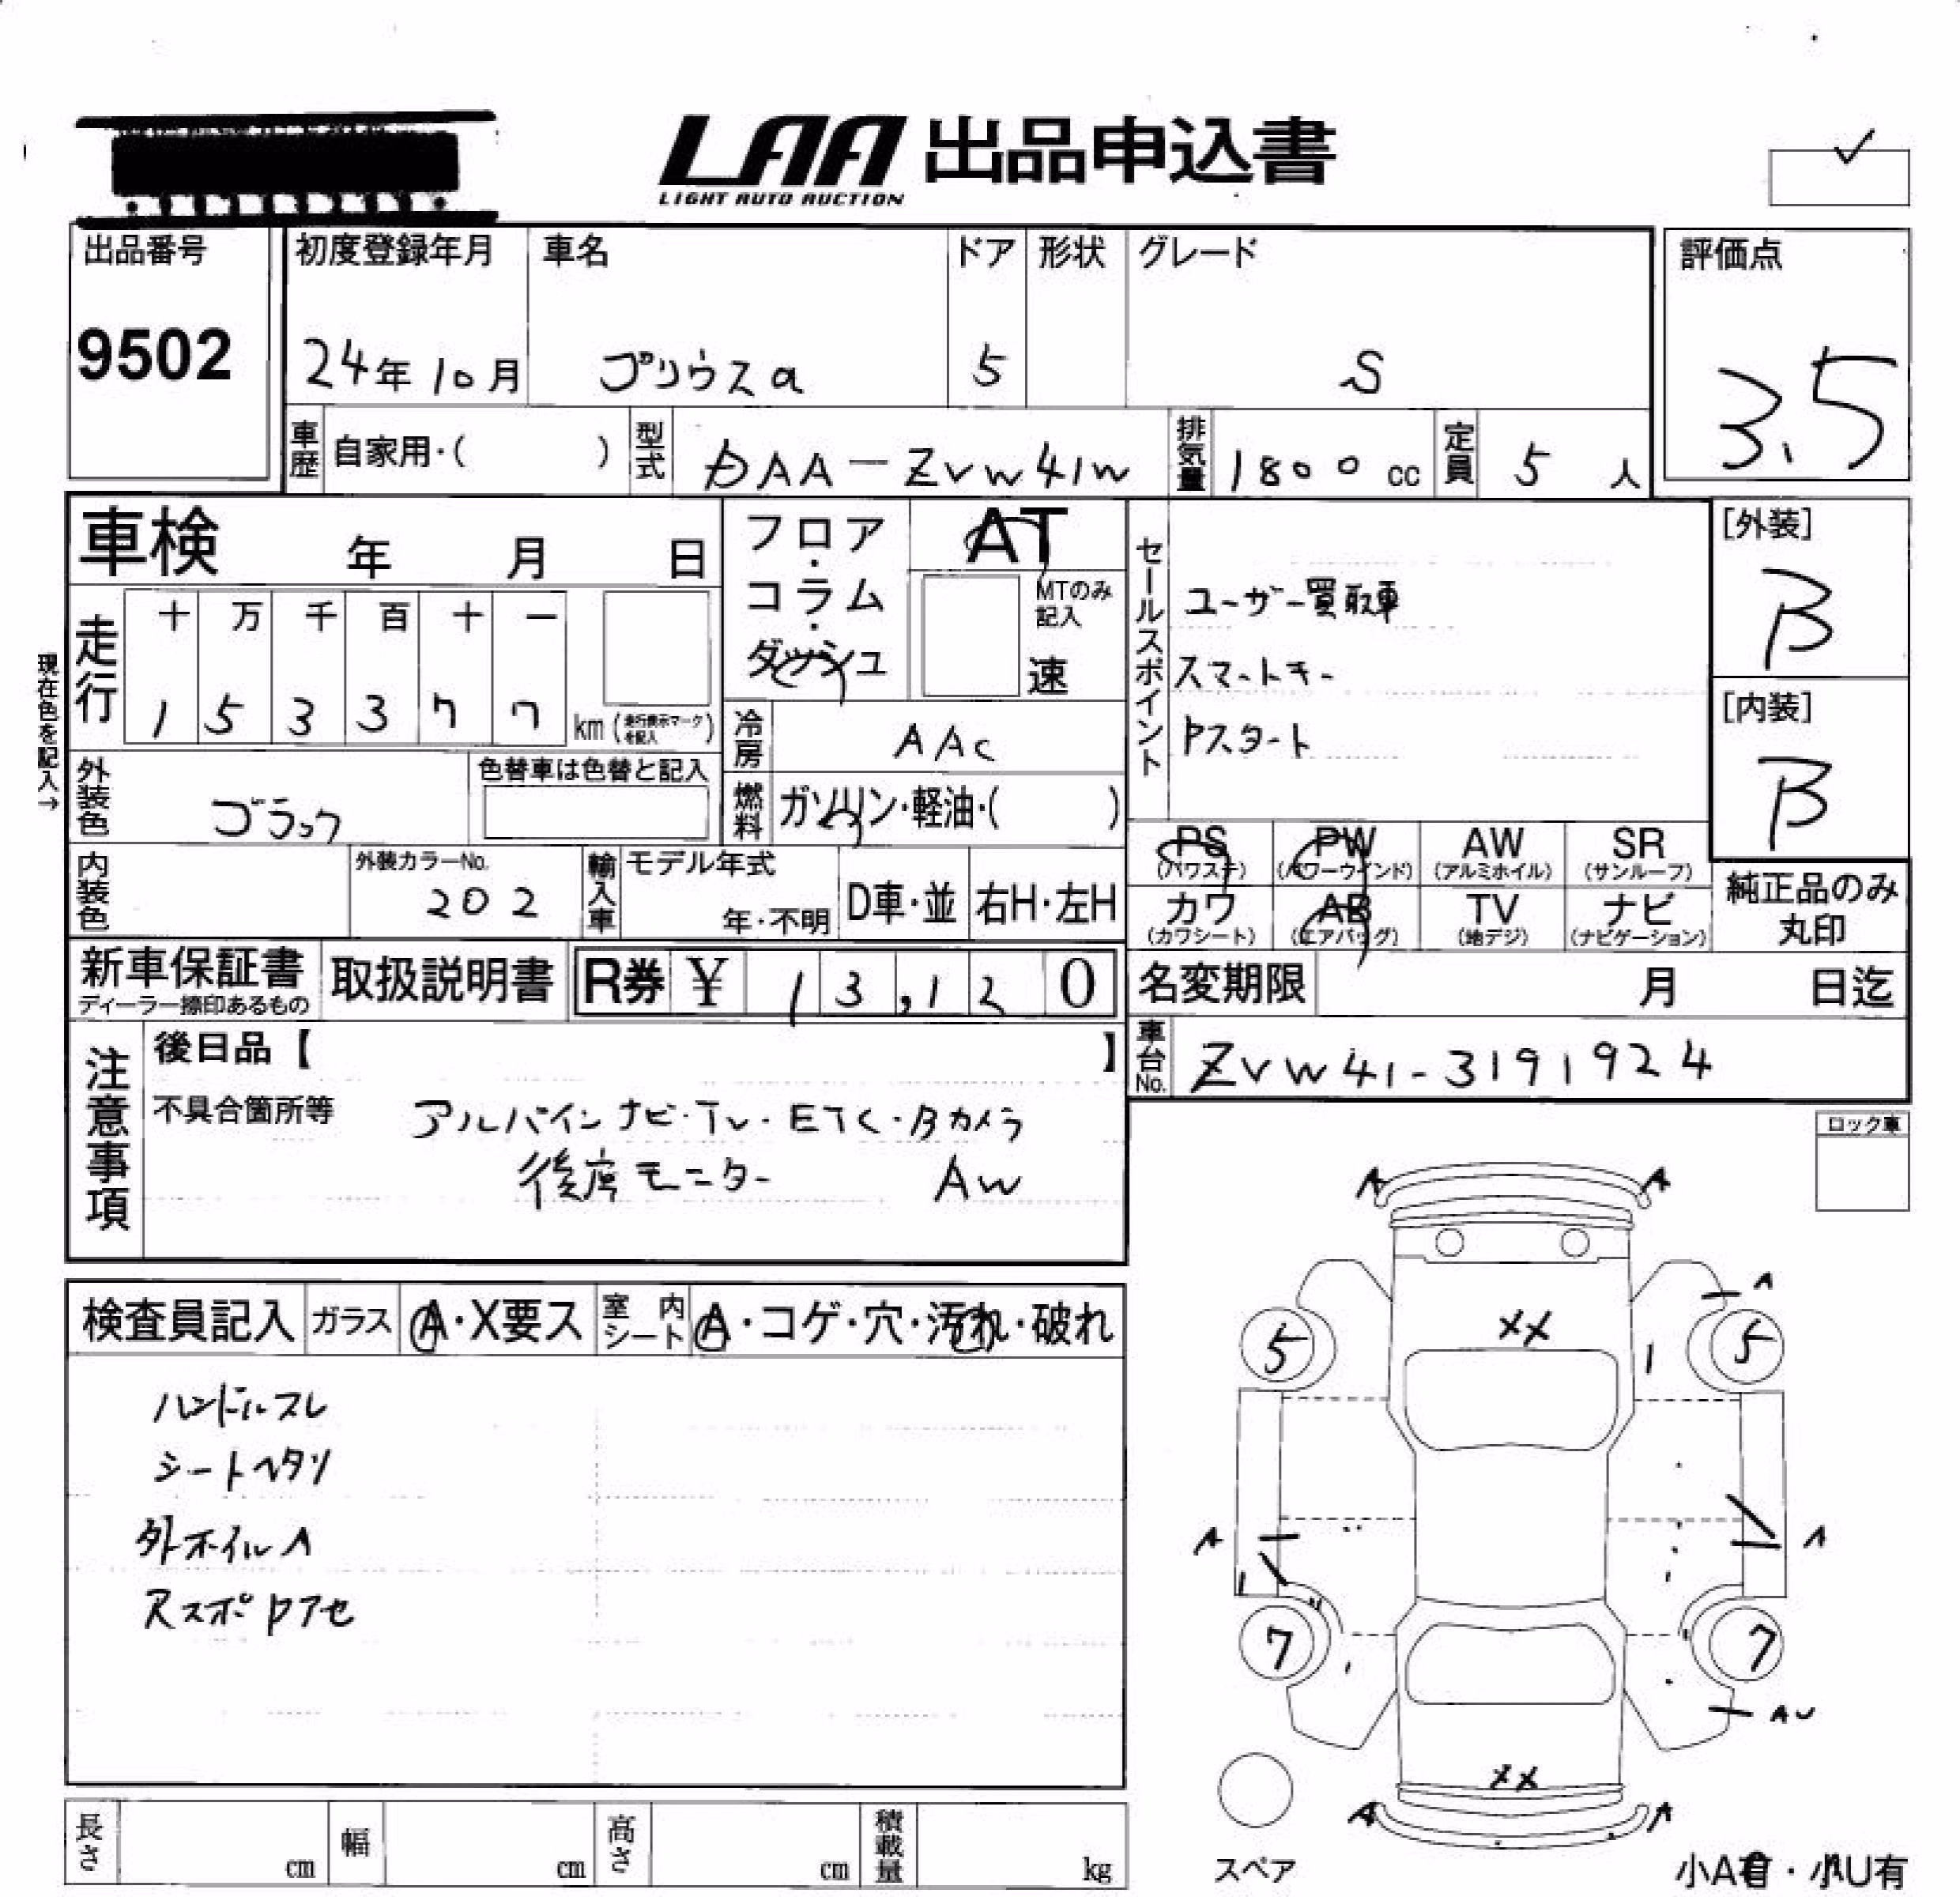 LAA 出品申込書
LIGHT AUTO AUCTION
出品番号
9502
初度登録年月
24年10月
車名
プリウスα
ドア
5
形状
グレード
S
評価点
3.5
車歴 自家用・( )
型式 DAA-ZVW41W
排気量 1800 cc
定員 5 人
車検 年 月 日
フロア・コラム・ダッシュ
AT
MTのみ記入
速
セールスポイント
ユーザー買取車
スマートキー
Pスタート
[外装]
B
[内装]
B
現在色を記入→
走行
十 万 千 百 十 一
1 5 3 3 7 7 km (走行表示マークを記入)
冷房 AAC
外装色 ブラック
色替車は色替と記入
燃料 ガソリン・軽油・( )
PS (パワステ)
PW (パワーウインド)
AW (アルミホイル)
SR (サンルーフ)
カワ (カワシート)
AB (エアバッグ)
TV (地デジ)
ナビ (ナビゲーション)
純正品のみ丸印
内装色
外装カラーNo.
202
輸入車
モデル年式
年・不明
D車・並
右H・左H
新車保証書
ディーラー捺印あるもの
取扱説明書
R券 ¥ 13,120
名変期限 月 日迄
車台No. ZVW41-3191924
注意事項
後日品【 】
不具合箇所等
アルパインナビ・TV・ETC・Bカメラ
後席モニター AW
ロック車
検査員記入
ガラス A・X要ス
室内シート A・コゲ・穴・汚れ・破れ
ハンドルスレ
シートヘタリ
外ホイルA
A A
A
XX
5 5
A A
7 7
AU
XX
A A
スペア
小A有・小U有
長さ cm
幅 cm
高さ cm
積載量 kg